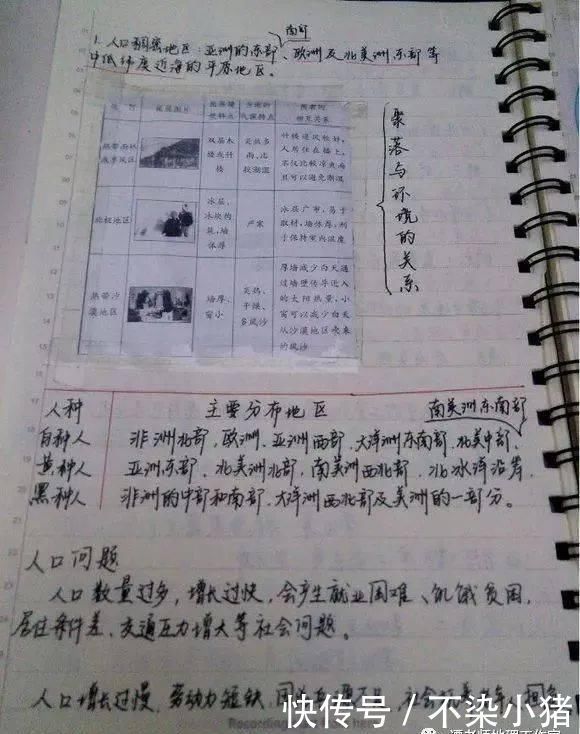 南部
1. 人口稠密地区：亚洲的东部、欧洲及北美洲东部等
中低纬度近海的平原地区。
民居图片
热带雨林
或季风区
双层木
楼或竹
楼
炎热多
雨、比
较潮湿
竹楼通风较好,
人居住在楼上,
不仅比较凉爽而
且可以避免潮湿
北极地区
冰屋,
冰块构
筑,墙
体厚
严寒
冰层广布,易于
取材,墙体厚,利
于保持室内温度
热带沙
漠地区
墙厚、
窗小
炎热、
干燥、
多风沙
厚墙减少白天通
过墙壁传导进入
的太阳热量,小
窗可以减少白天
从沙漠地区吹来
的风沙
聚落与环境的关系
人种 主要分布地区 南美洲东南部
白种人 非洲北部，欧洲、亚洲西部、大洋洲东南部、北美中部、
黄种人 亚洲东部、北美洲北部，南美洲西北部、北冰洋沿岸，
黑种人 非洲的中部和南部、大洋洲西北部及美洲的一部分。
人口问题
人口数量过多，增长过快，会产生就业困难、饥饿贫困，
居住条件差、交通压力增大等社会问题。
人口增长过慢，劳动力短缺，国
快传号 / 不染小猪